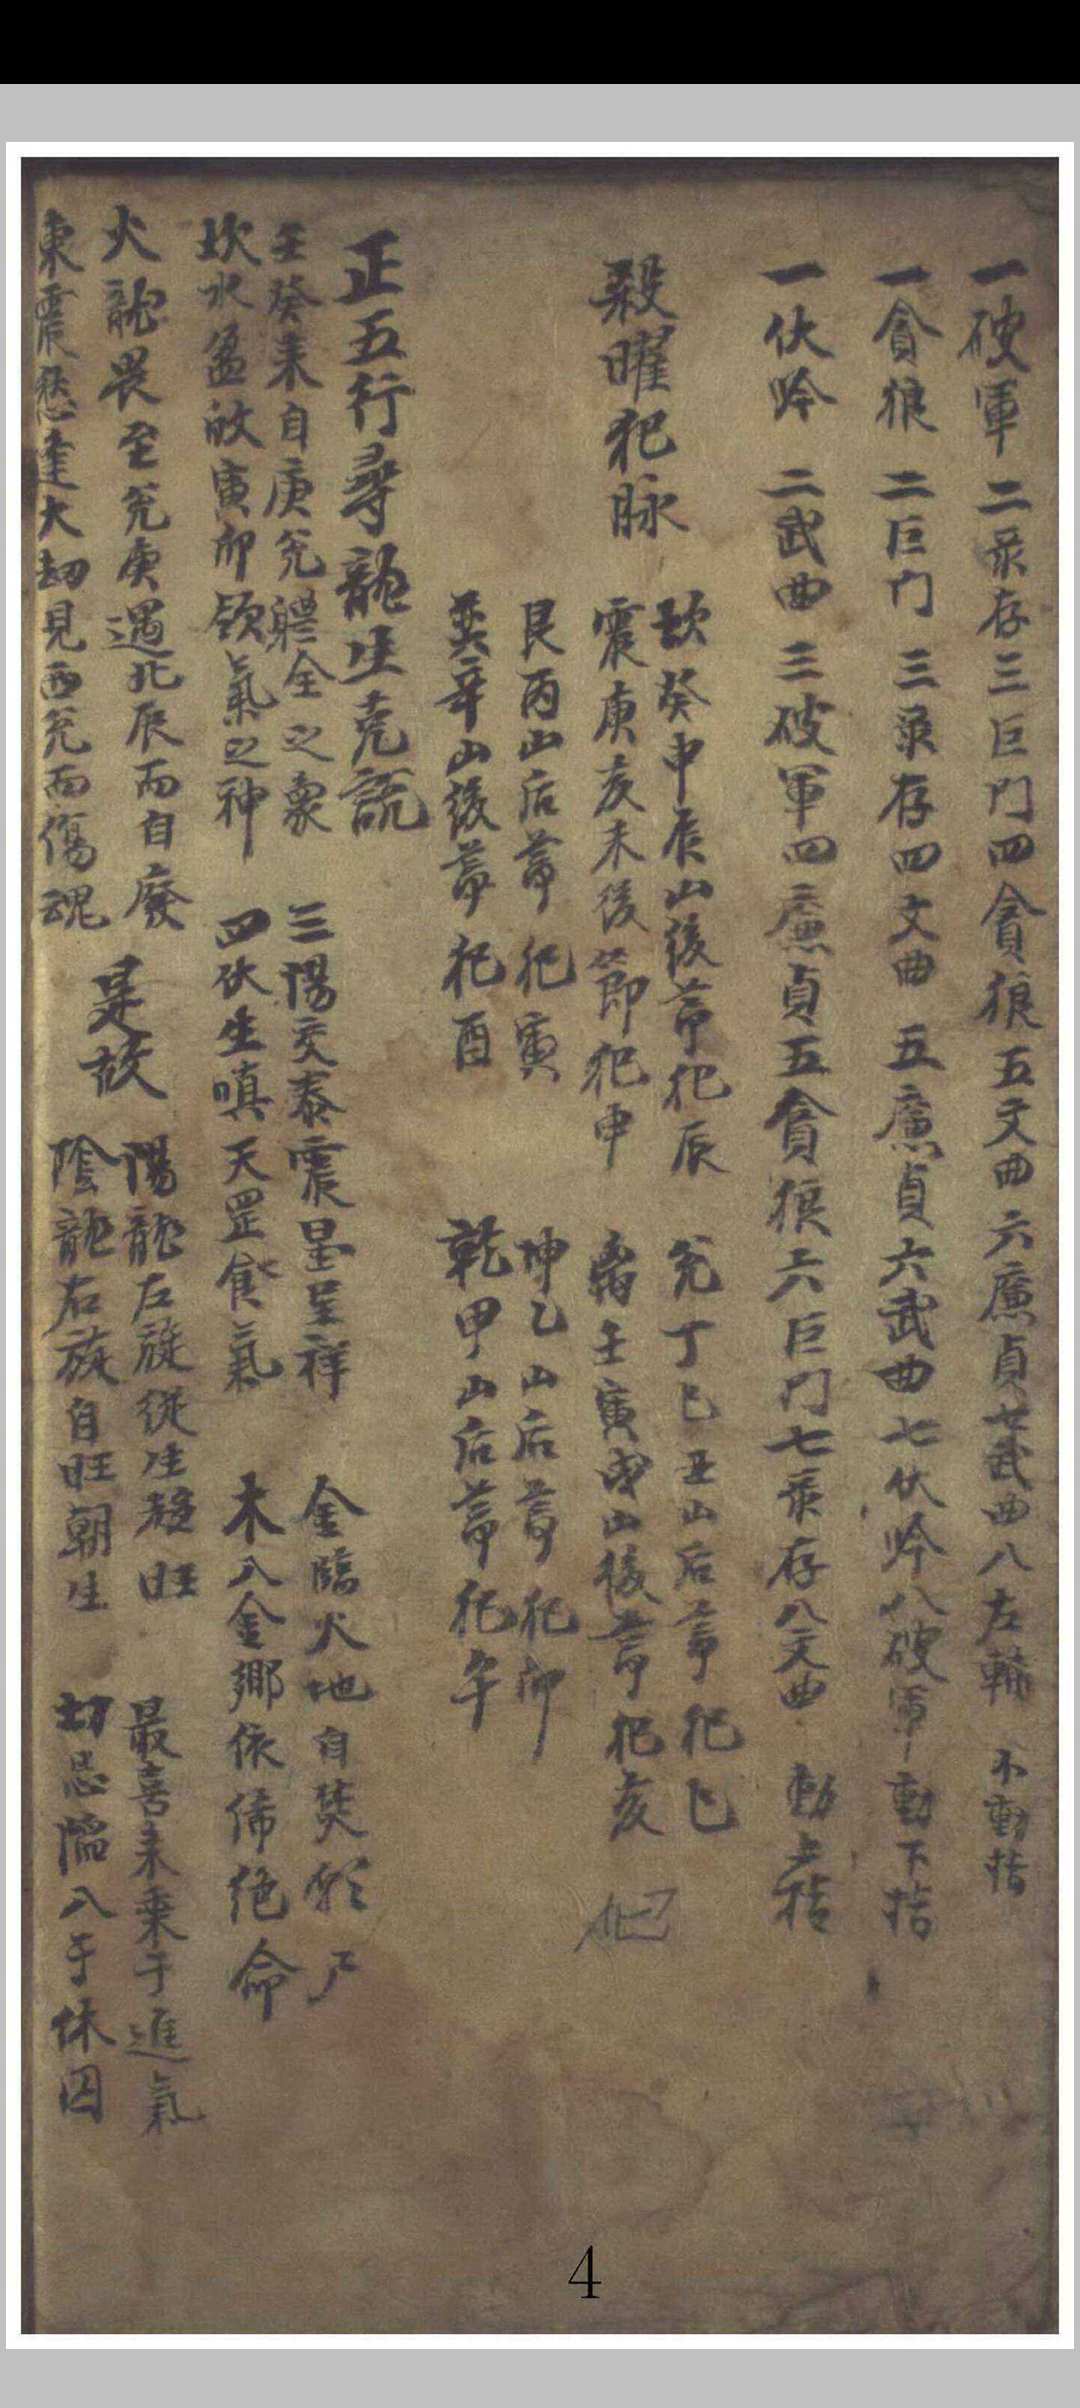 一破軍 二彔存 三巨門 四貪狼 五文曲 六廉貞 七武曲 八左輔 不動桔
一貪狼 二巨门 三彔存 四文曲 五廉貞 六武曲 七伏吟 八破軍 動下桔
一伏吟 二武曲 三破軍 四廉貞 五貪狼 六巨門 七彔存 八文曲 動上桔
殺曜犯脉
坎癸申辰山後莭犯辰 兊丁巳丑山后莭犯巳
震庚亥未後節犯申 离壬寅戌山後莭犯亥
艮丙山后莭犯寅 坤乙山后莭犯卯
巽辛山後莭犯酉 乾甲山后莭犯午
正五行尋龍生克説
壬癸耒自庚兊軆全之象 三陽交泰震星呈祥 金臨火地自焚 尸
坎水盈於寅卯領氣之神 四伏生嗔天罡食氣 木入金鄉依俙绝命
火龍畏至兊庚遇北辰而自廢
東震愁逢大刧見西兊而傷魂
是故
陽龍左旋從生趍旺 最喜耒乗于進氣
陰龍右旋自旺朝生 切忌陷入于休囚
4